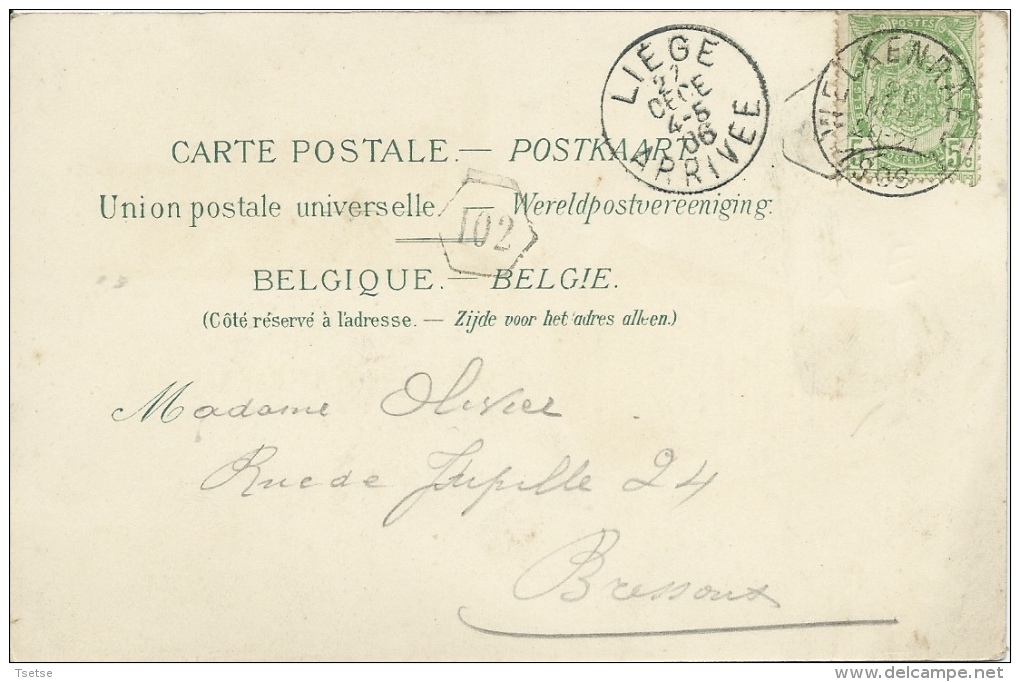 LIÉGE
4-5
06
ARRIVÉE
POSTES
5
1906
CARTE POSTALE. — POSTKAART.
Union postale universelle. — Wereldpostvereeniging.
102
BELGIQUE. — BELGIE.
(Côté réservé à l'adresse. — Zijde voor het adres alleen.)
Madame Olivier
Rue de Jupille 24
Bressoux
Tsetse
www.delcampe.net